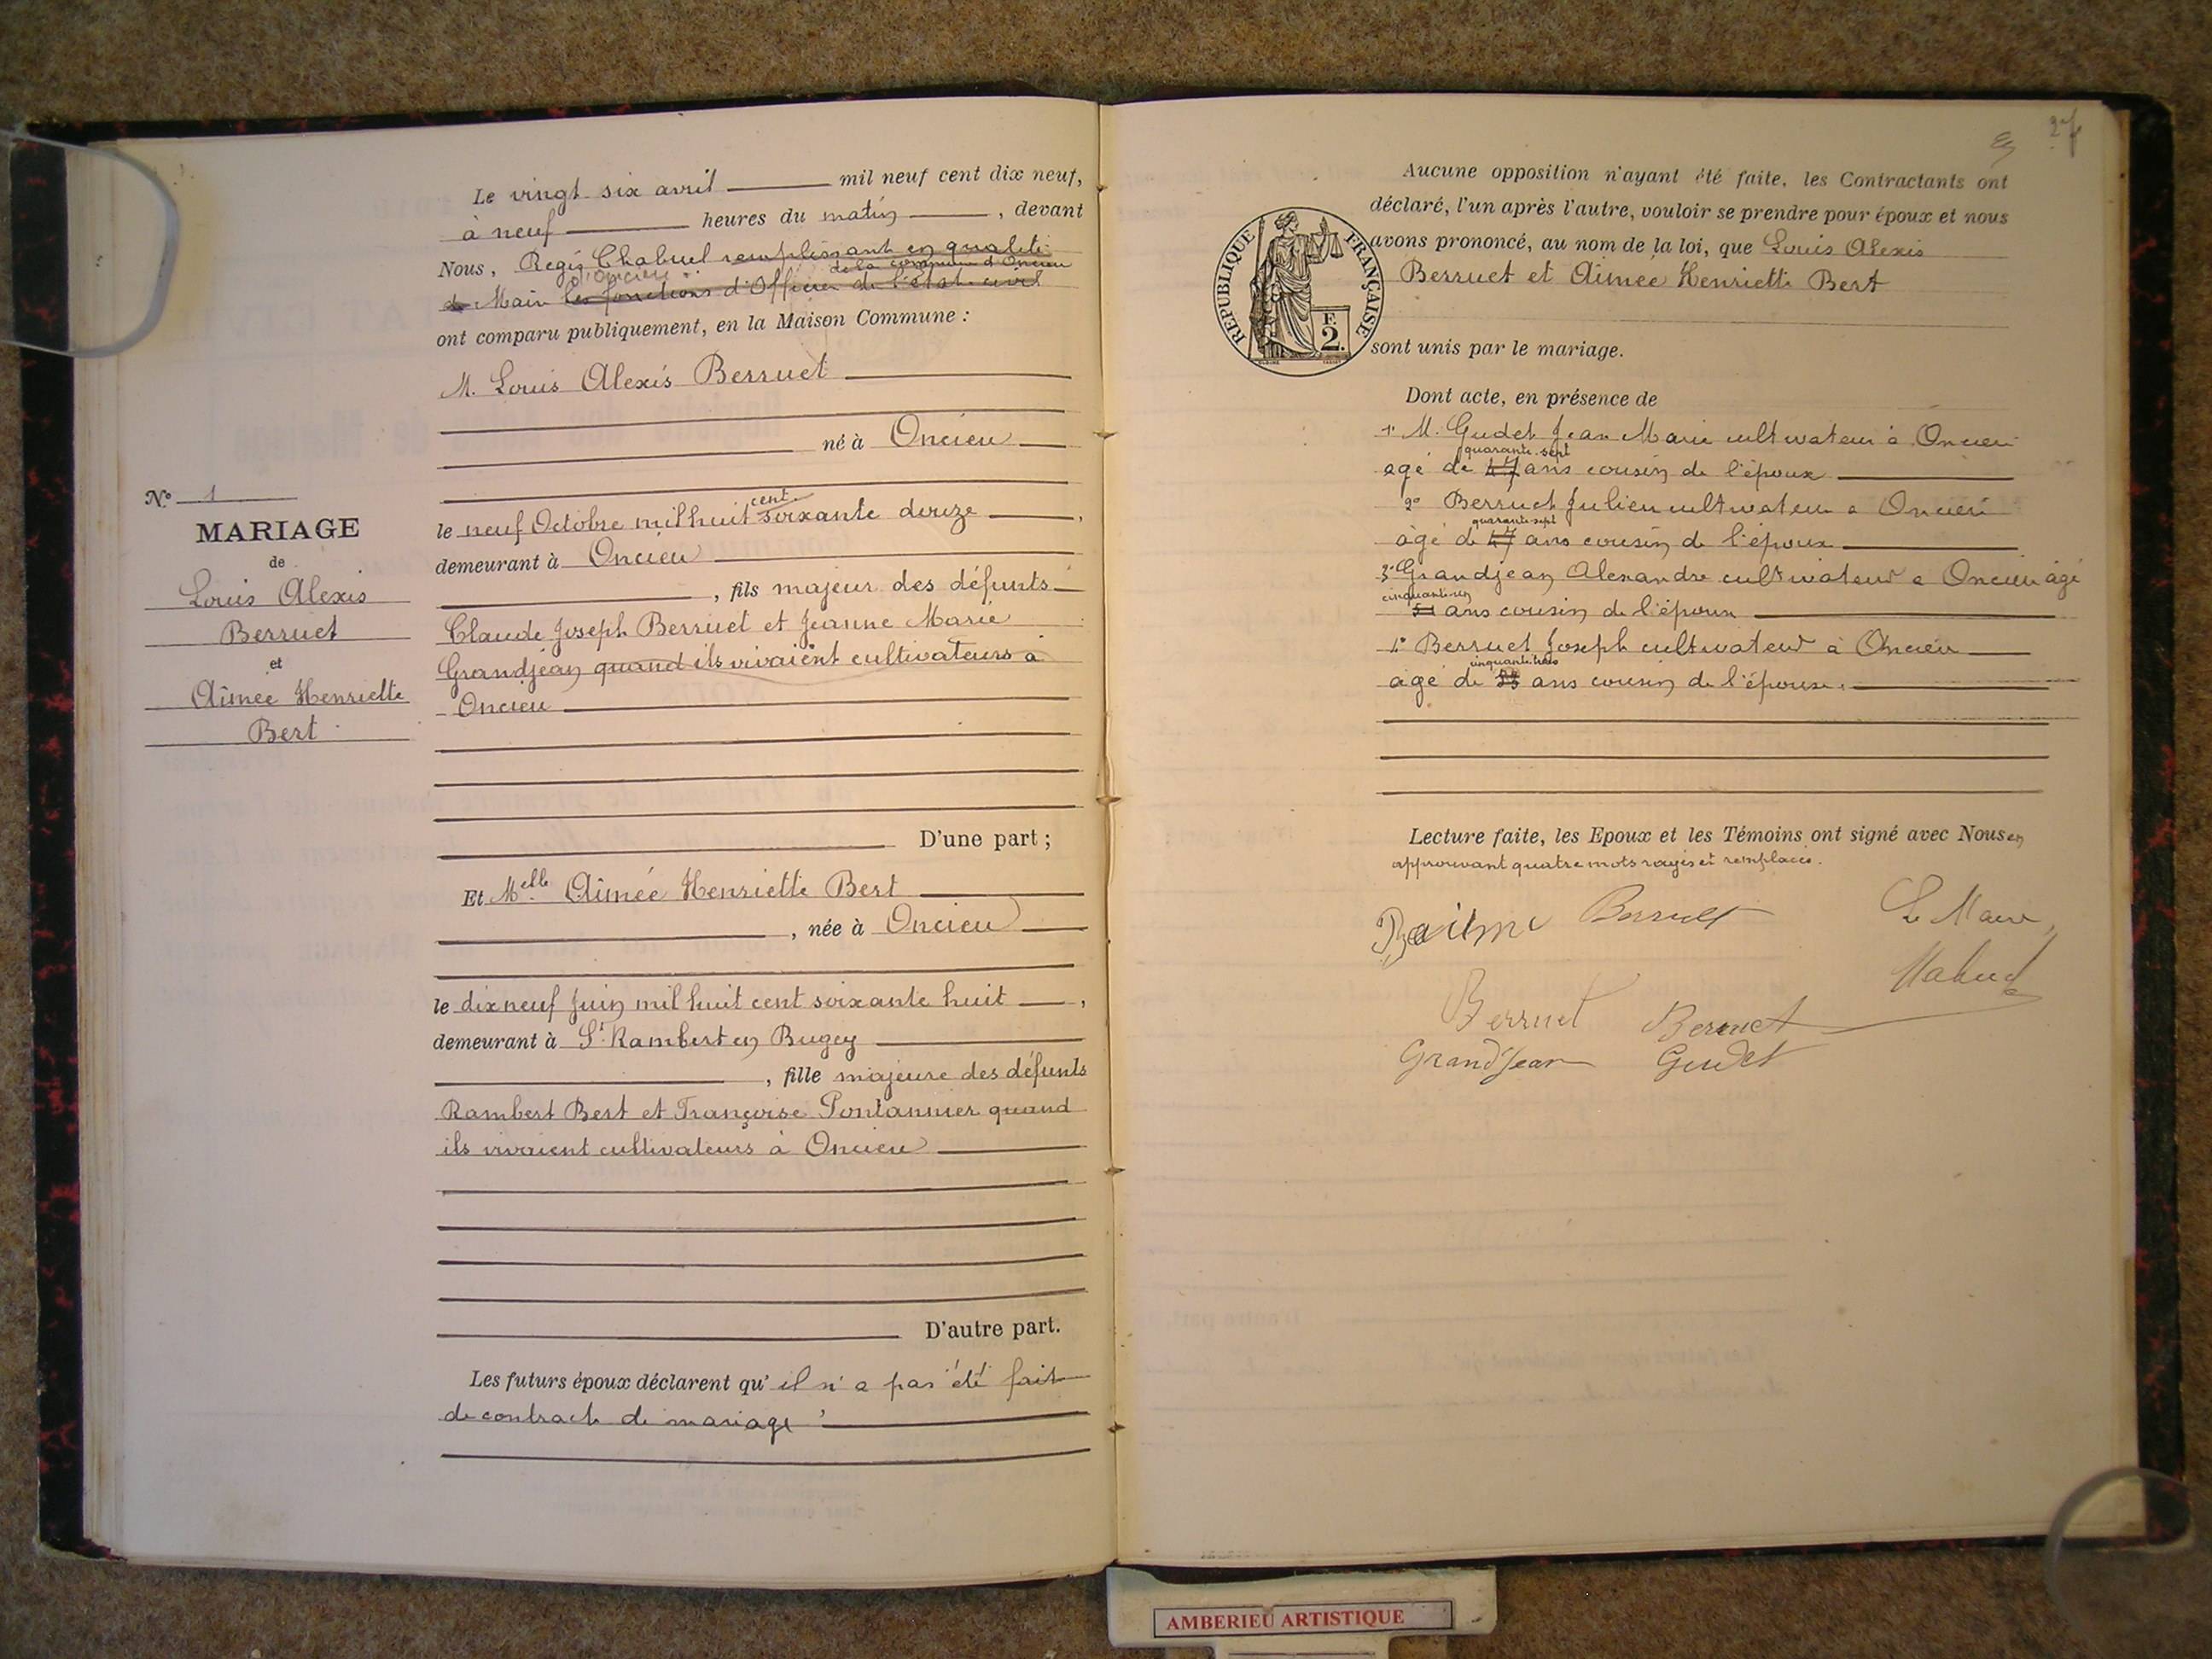 Le vingt six avril mil neuf cent dix neuf,
à neuf heures du matin, devant
Nous, Regis Chabuel remplissant en qualité
de la commune d'Oncieu
d'Oncieu
de Maire les fonctions d'Officier de l'état-civil
ont comparu publiquement, en la Maison Commune :
M. Louis Alexis Berruet
né à Oncieu
cent
le neuf Octobre mil huit soixante douze,
demeurant à Oncieu
, fils majeur des défunts
Claude Joseph Berruet et Jeanne Marie
Grandjean quand ils vivaient cultivateurs à
Oncieu
D'une part ;
Et Melle Aimée Henriette Bert
, née à Oncieu
le dix neuf Juin mil huit cent soixante huit,
demeurant à St Rambert en Bugey
, fille majeure des défunts
Rambert Bert et Françoise Pontannier quand
ils vivaient cultivateurs à Oncieu
D'autre part.
Les futurs époux déclarent qu'il n'a pas été fait
de contract de mariage
N° 1
MARIAGE
de
Louis Alexis
Berruet
et
Aimée Henriette
Bert
27
Aucune opposition n'ayant été faite, les Contractants ont
déclaré, l'un après l'autre, vouloir se prendre pour époux et nous
avons prononcé, au nom de la loi, que Louis Alexis
Berruet et Aimée Henriette Bert
sont unis par le mariage.
REPUBLIQUE FRANÇAISE
F.
2.
Dont acte, en présence de
1° M. Gudet Jean Marie cultivateur à Oncieu
quarante-sept
agé de 47 ans cousin de l'époux
2° Berruet Julien cultivateur a Oncieu
quarante-sept
àgé de 47 ans cousin de l'époux
3° Grandjean Alexandre cultivateur a Oncieu âgé
cinquante-un
51 ans cousin de l'époux
4° Berruet Joseph cultivateur à Oncieu
cinquante-trois
agé de 53 ans cousin de l'épouse.
Lecture faite, les Epoux et les Témoins ont signé avec Nous en
approuvant quatre mots rayés et remplacés.
Berruet
Le Maire,
Berruet Berruet
Grandjean Gudet
AMBERIEU ARTISTIQUE